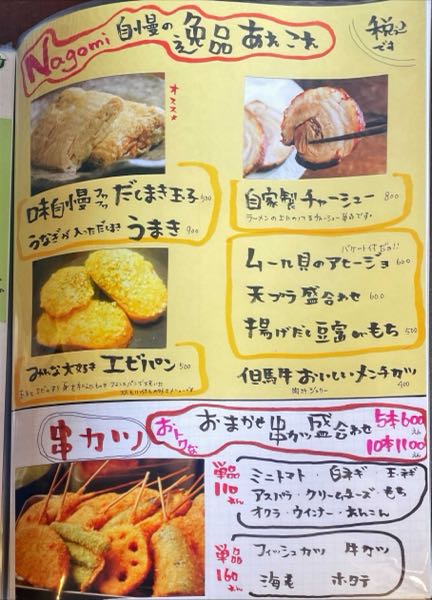 Nagomi 自慢の逸品あれこれ
税込です
オススメ
味自慢 だしまき玉子 500
うなぎが入っただしまき うまき 900
自家製チャーシュー 800
バケット付だよ!!
ムール貝のアヒージョ 600
天プラ盛合わせ 600
揚げだし豆富 or もち 500
みんな大好き エビパン 500
但馬牛おいしいメンチカツ 400
肉汁ジュワー
串カツ
おトクな おまかせ串カツ盛合わせ 5本600えん
10本1100えん
単品110えん
ミニトマト 白ネギ 玉ネギ
アスパラ・クリームチーズ・もち
オクラ・ウインナー・れんこん
単品160えん
フィッシュカツ 牛カツ
海老 ホタテ